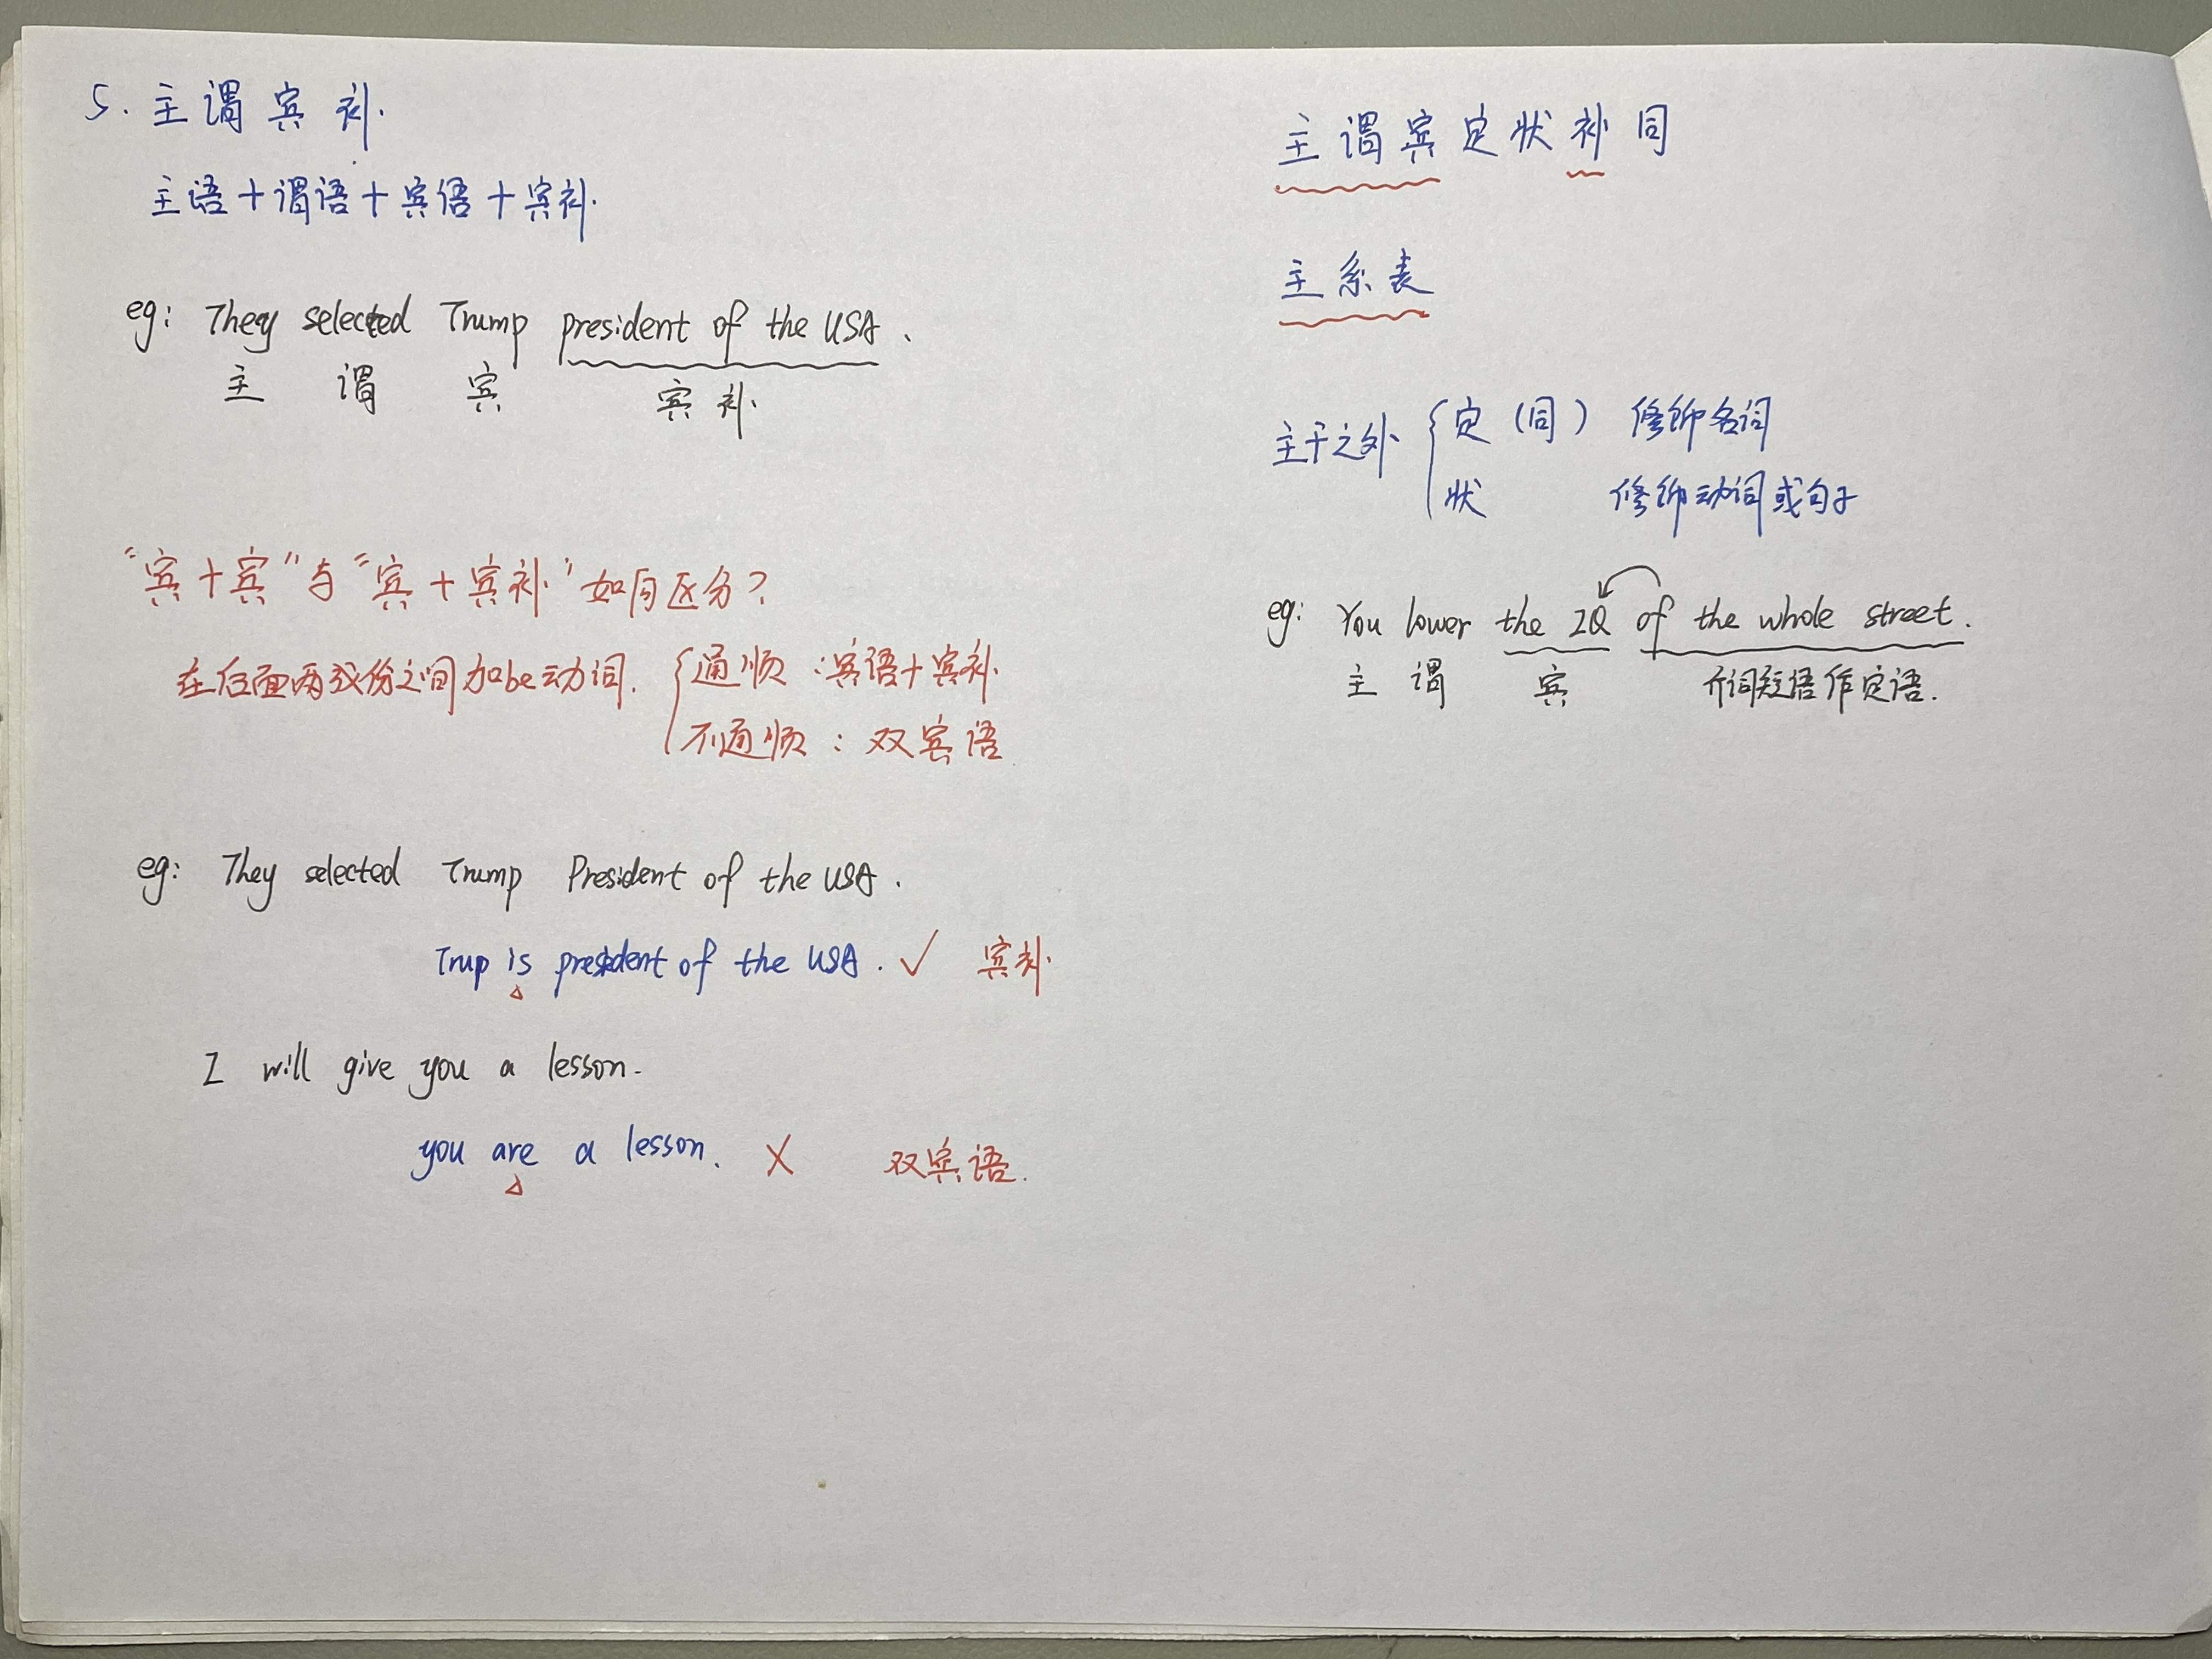 5. 主谓宾补.
主语+谓语+宾语+宾补.
eg: They selected Trump president of the USA.
主 谓 宾 宾补.
"宾+宾"与"宾+宾补"如何区分?
在后面两成份之间加be动词. { 通顺:宾语+宾补.
不通顺:双宾语
eg: They selected Trump President of the USA.
Trup is president of the USA. ✓ 宾补.
I will give you a lesson.
you are a lesson. × 双宾语.
主谓宾定状补同
主系表
主干之外 { 定(同) 修饰名词
状 修饰动词或句子
eg: You lower the IQ of the whole street.
主 谓 宾 介词短语作定语.